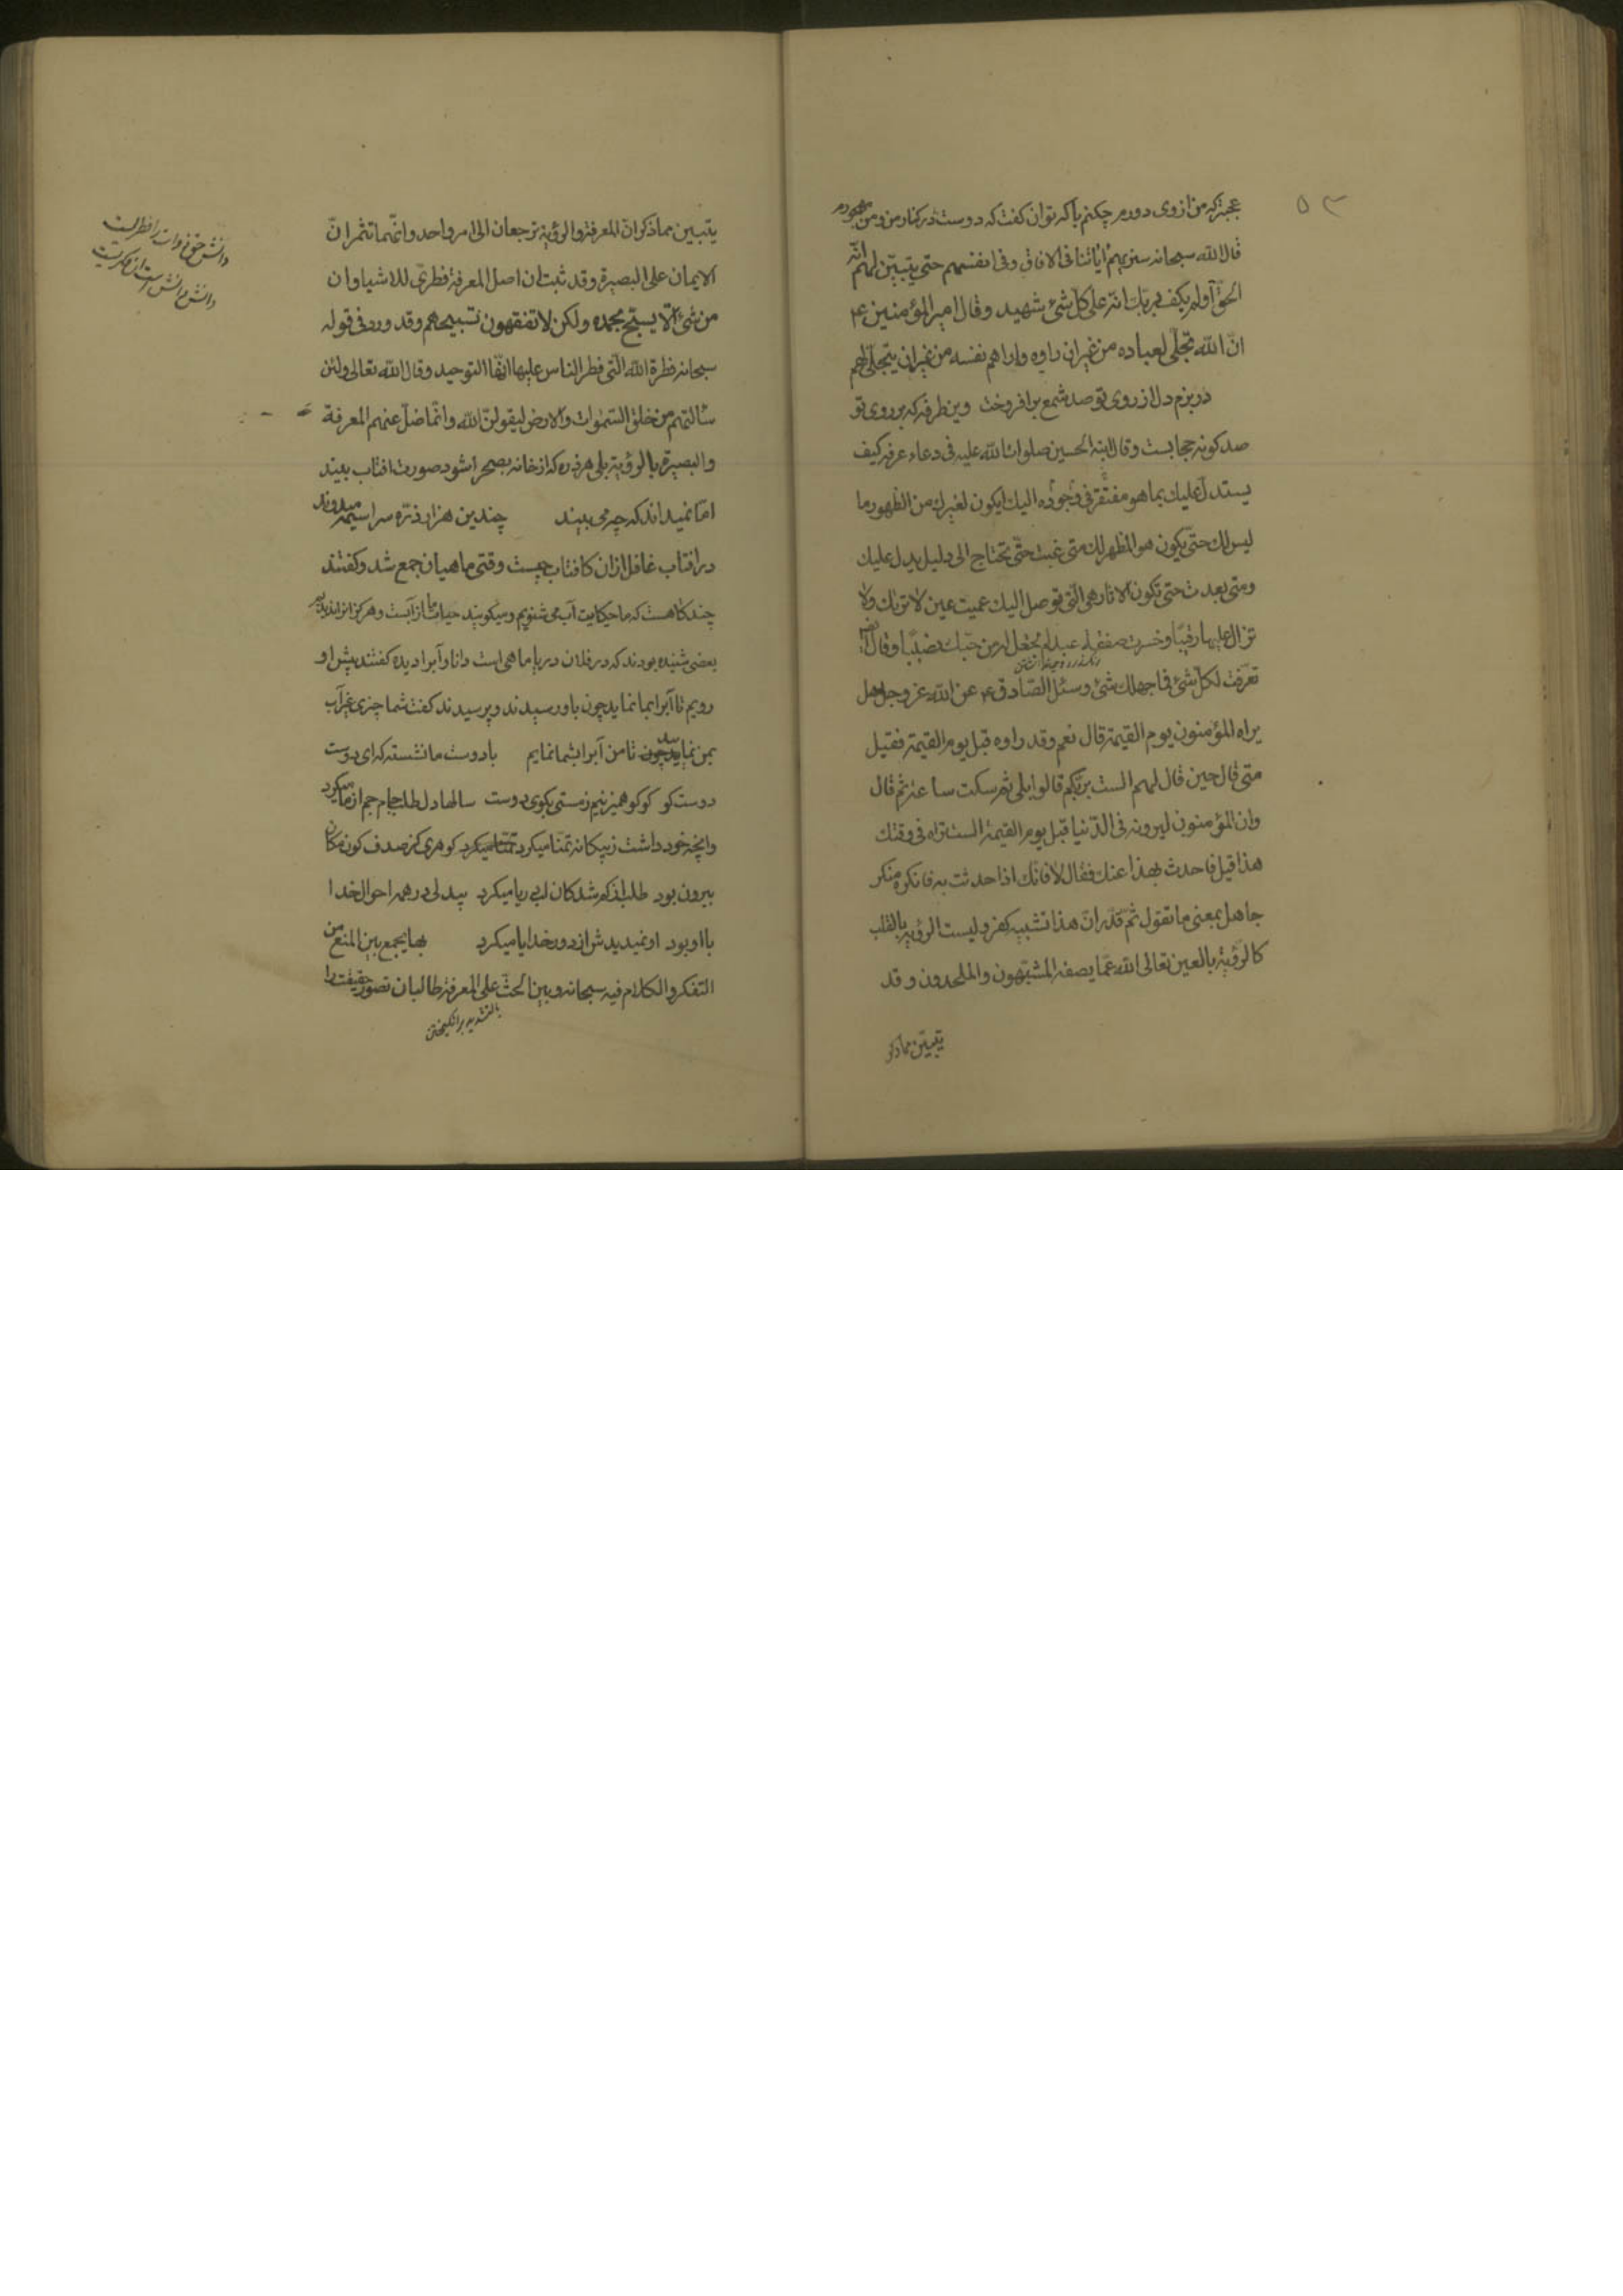 ۵۳
عجبتر که من از وی دورم چکنم با که توان گفت که دوست در کنار من و من مهجورم
قال الله سبحانه سنریهم ایاتنا فی الافاق و فی انفسهم حتی یتبیّن لهم انّه
الحقّ أولم یکف بربّک انّه علی کلّ شئ شهید وقال امیر المؤمنین ع
انّ الله تجلّی لعباده من غیر ان راوه واراهم نفسه من غیر ان یتجلّی لهم
در بزم دل از روی تو صد شمع برافروخت وین طرفه که بر روی تو
صد کونه حجابست وقال ابنه الحسین صلوات الله علیه فی دعاء عرفه کیف
یستدلّ علیک بما هو مفتقر فی وجوده الیک ایکون لغیرک من الظهور ما
لیس لک حتّی یکون هو المظهر لک متی غبت حتّی تحتاج الی دلیل یدل علیک
ومتی بعدت حتی تکون الاثار هی الّتی توصل الیک عمیت عین لا تراک ولا
تزال علیها رقیبًا وخسرت صفقة عبد لم تجعل له من حبّک نصیبًا وقال ایضا
تعرّفت لکلّ شئ فما جهلک شئ وسئل الصّادق ع عن الله عز وجل هل
یراه المؤمنون یوم القیمة قال نعم وقد راوه قبل یوم القیمة فقیل
متی قال حین قال لهم الست بربّکم قالوا بلی ثم سکت ساعة ثم قال
وان المؤمنون لیرونه فی الدّنیا قبل یوم القیمة الست تراه فی وقتک
هذا قیل فاحدث بهذا عنک فقال لا فانّک اذا حدثت به فانکره منکر
جاهل بمعنی ما تقول ثمّ قدّر انّ هذا تشبیه کفر ولیست الرؤیة بالقلب
کالرؤیة بالعین تعالی الله عمّا یصفه المشبّهون والملحدون وقد
یتبیّن مما ذکر
یتبین مما ذکر انّ المعرفة والرؤیة ترجعان الی امر واحد وانّهما تثمران
الایمان علی البصیرة وقد ثبت ان اصل المعرفة فطریّ للاشیا وان
من شئ الّا یسبّح بحمده ولکن لا تفقهون تسبیحهم وقد ورد فی قوله
سبحانه فطرة الله الّتی فطر الناس علیها انّها التوحید وقال الله تعالی ولئن
سألتهم من خلق السّموات والارض لیقولنّ الله وانّما ضلّ عنهم المعرفة
والبصیرة بالرؤیة بلی هر ذره که از خانه بصحرا شود صورت افتاب بیند
امّا نمیداند که چه می بیند چندین هزار ذرّه سراسیمه میدوند
در افتاب غافل ازان کافتاب چیست وقتی ماهیان جمع شد و گفتند
چند کاهست که ما حکایت آب می شنویم و میکویند حیات ما از آبست و هرکز انرا ندیدیم
بعضی شنیده بودند که در فلان دریا ماهی است دانا و آبرا دیده گفتند پیش او
رویم تا آبرا بما نماید چون باو رسیدند و پرسیدند گفت شما چیزی غیر آب
بمن نمایید تا من آبرا بشما نمایم با دوست ما نشسته که ای دوست
دوست کو کو کو همیزنیم ز مستی بکوی دوست سالها دل طلب جام جم از ما میکرد
وانچه خود داشت ز بیکانه تمنّا میکرد کوهری کز صدف کون و مکان
بیرون بود طلب از کم شدکان لب دریا میکرد بیدلی در همه احوال خدا
با او بود او نمیدیدش از دور خدایا میکرد بها یجمع بین المنع من
التفکر والکلام فیه سبحانه وبین الحثّ علی المعرفة طالبان تصوّر حقیقت را
بالتشدید برانگیختن
دانش حق ذوات را فطریست
دانش دانش است ان فکریست